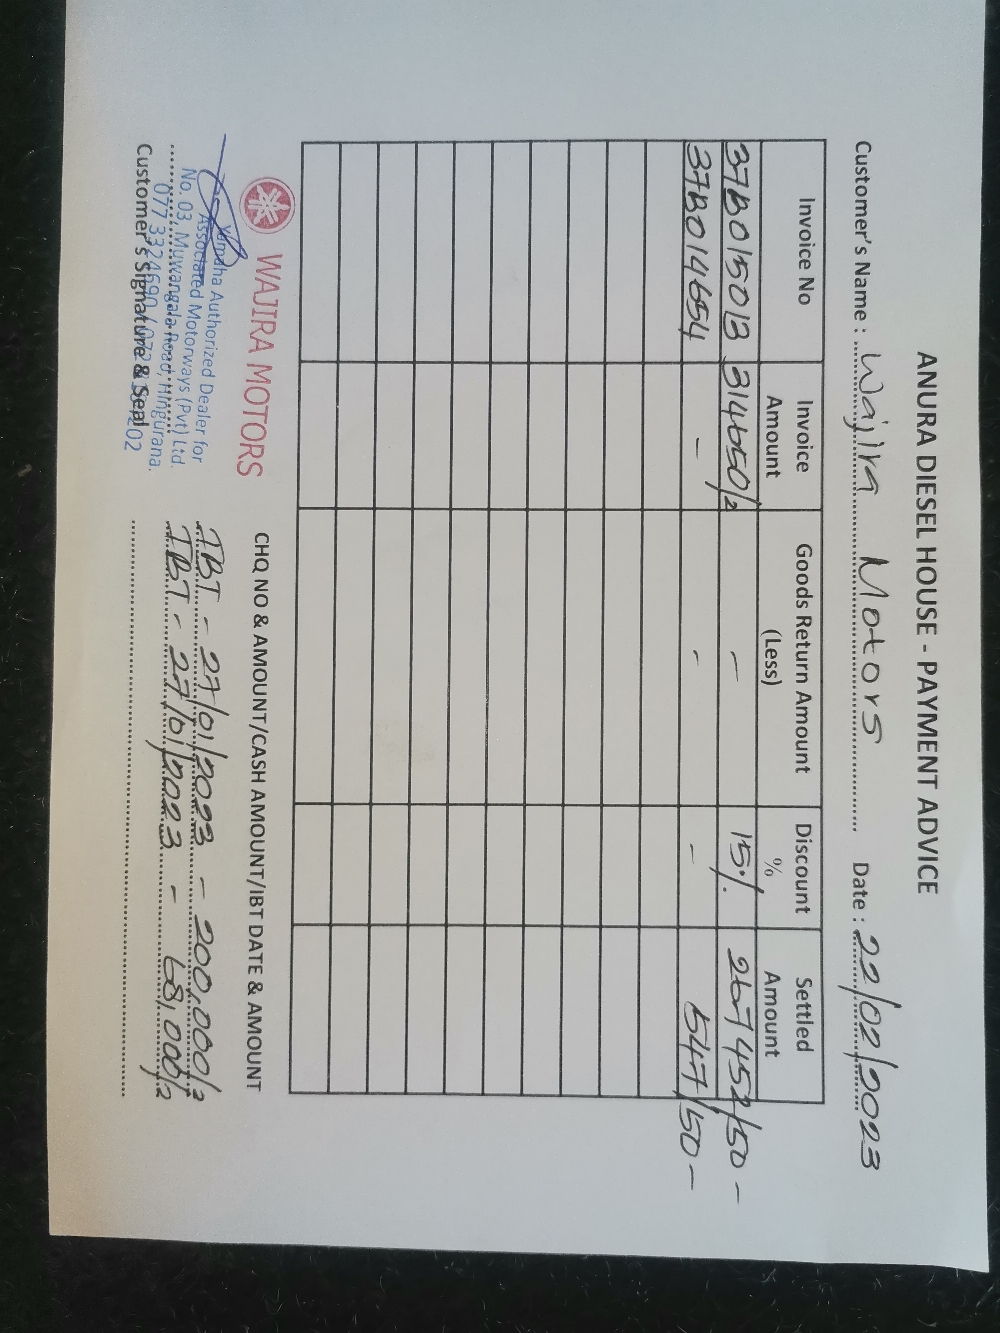 ANURA DIESEL HOUSE - PAYMENT ADVICE
Customer's Name : Wajira Motors Date : 22/02/2023
Invoice No Invoice Amount Goods Return Amount (Less) Discount % Settled Amount
37B015013 314650/= - 15% 267452/50 -
37B014654 - - - 547/50 -
WAJIRA MOTORS
Yamaha Authorized Dealer for
Associated Motorways (Pvt) Ltd.
No. 03, Muwangala Road, Hingurana.
077 3324690 /
Customer's Signature & Seal
CHQ NO & AMOUNT/CASH AMOUNT/IBT DATE & AMOUNT
IBT - 27/01/2023 - 200,000/=
IBT - 27/01/2023 - 68,000/=